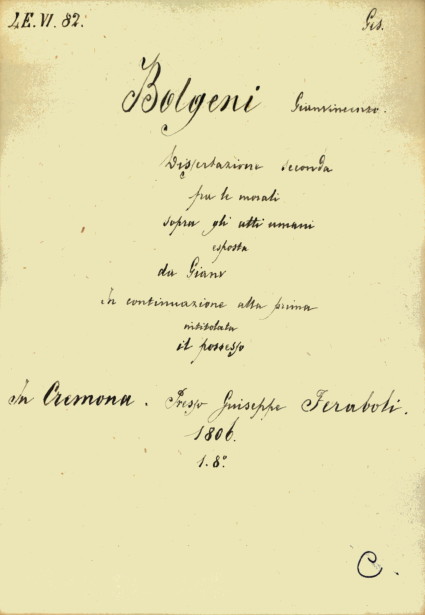 LE. VI. 82. Ges.
Bolgeni Gianvincenzo.
Dissertazione seconda
fra le morali
sopra gli atti umani
esposta
da Gianv
In continuazione alla prima
intitolata
il possesso
In Cremona. Presso Guiseppe Feraboli.
1806.
1. 8°.
C.